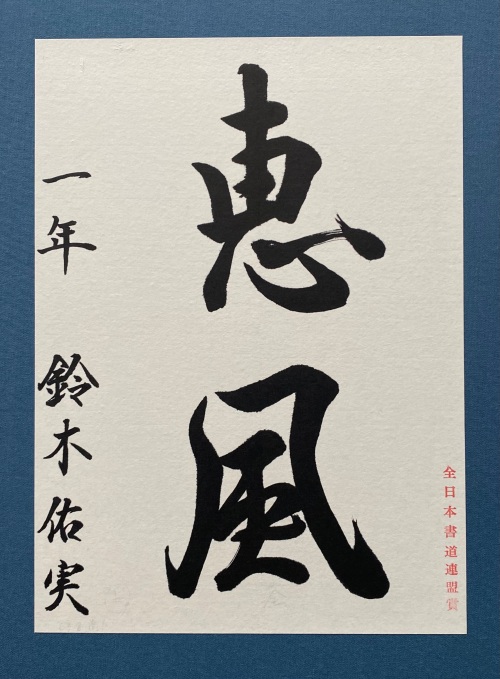 恵風
一年 鈴木佑実
全日本書道連盟賞